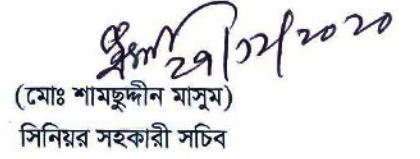 ২৭/১২/২০২০
(মোঃ শামছুদ্দীন মাসুম)
সিনিয়র সহকারী সচিব